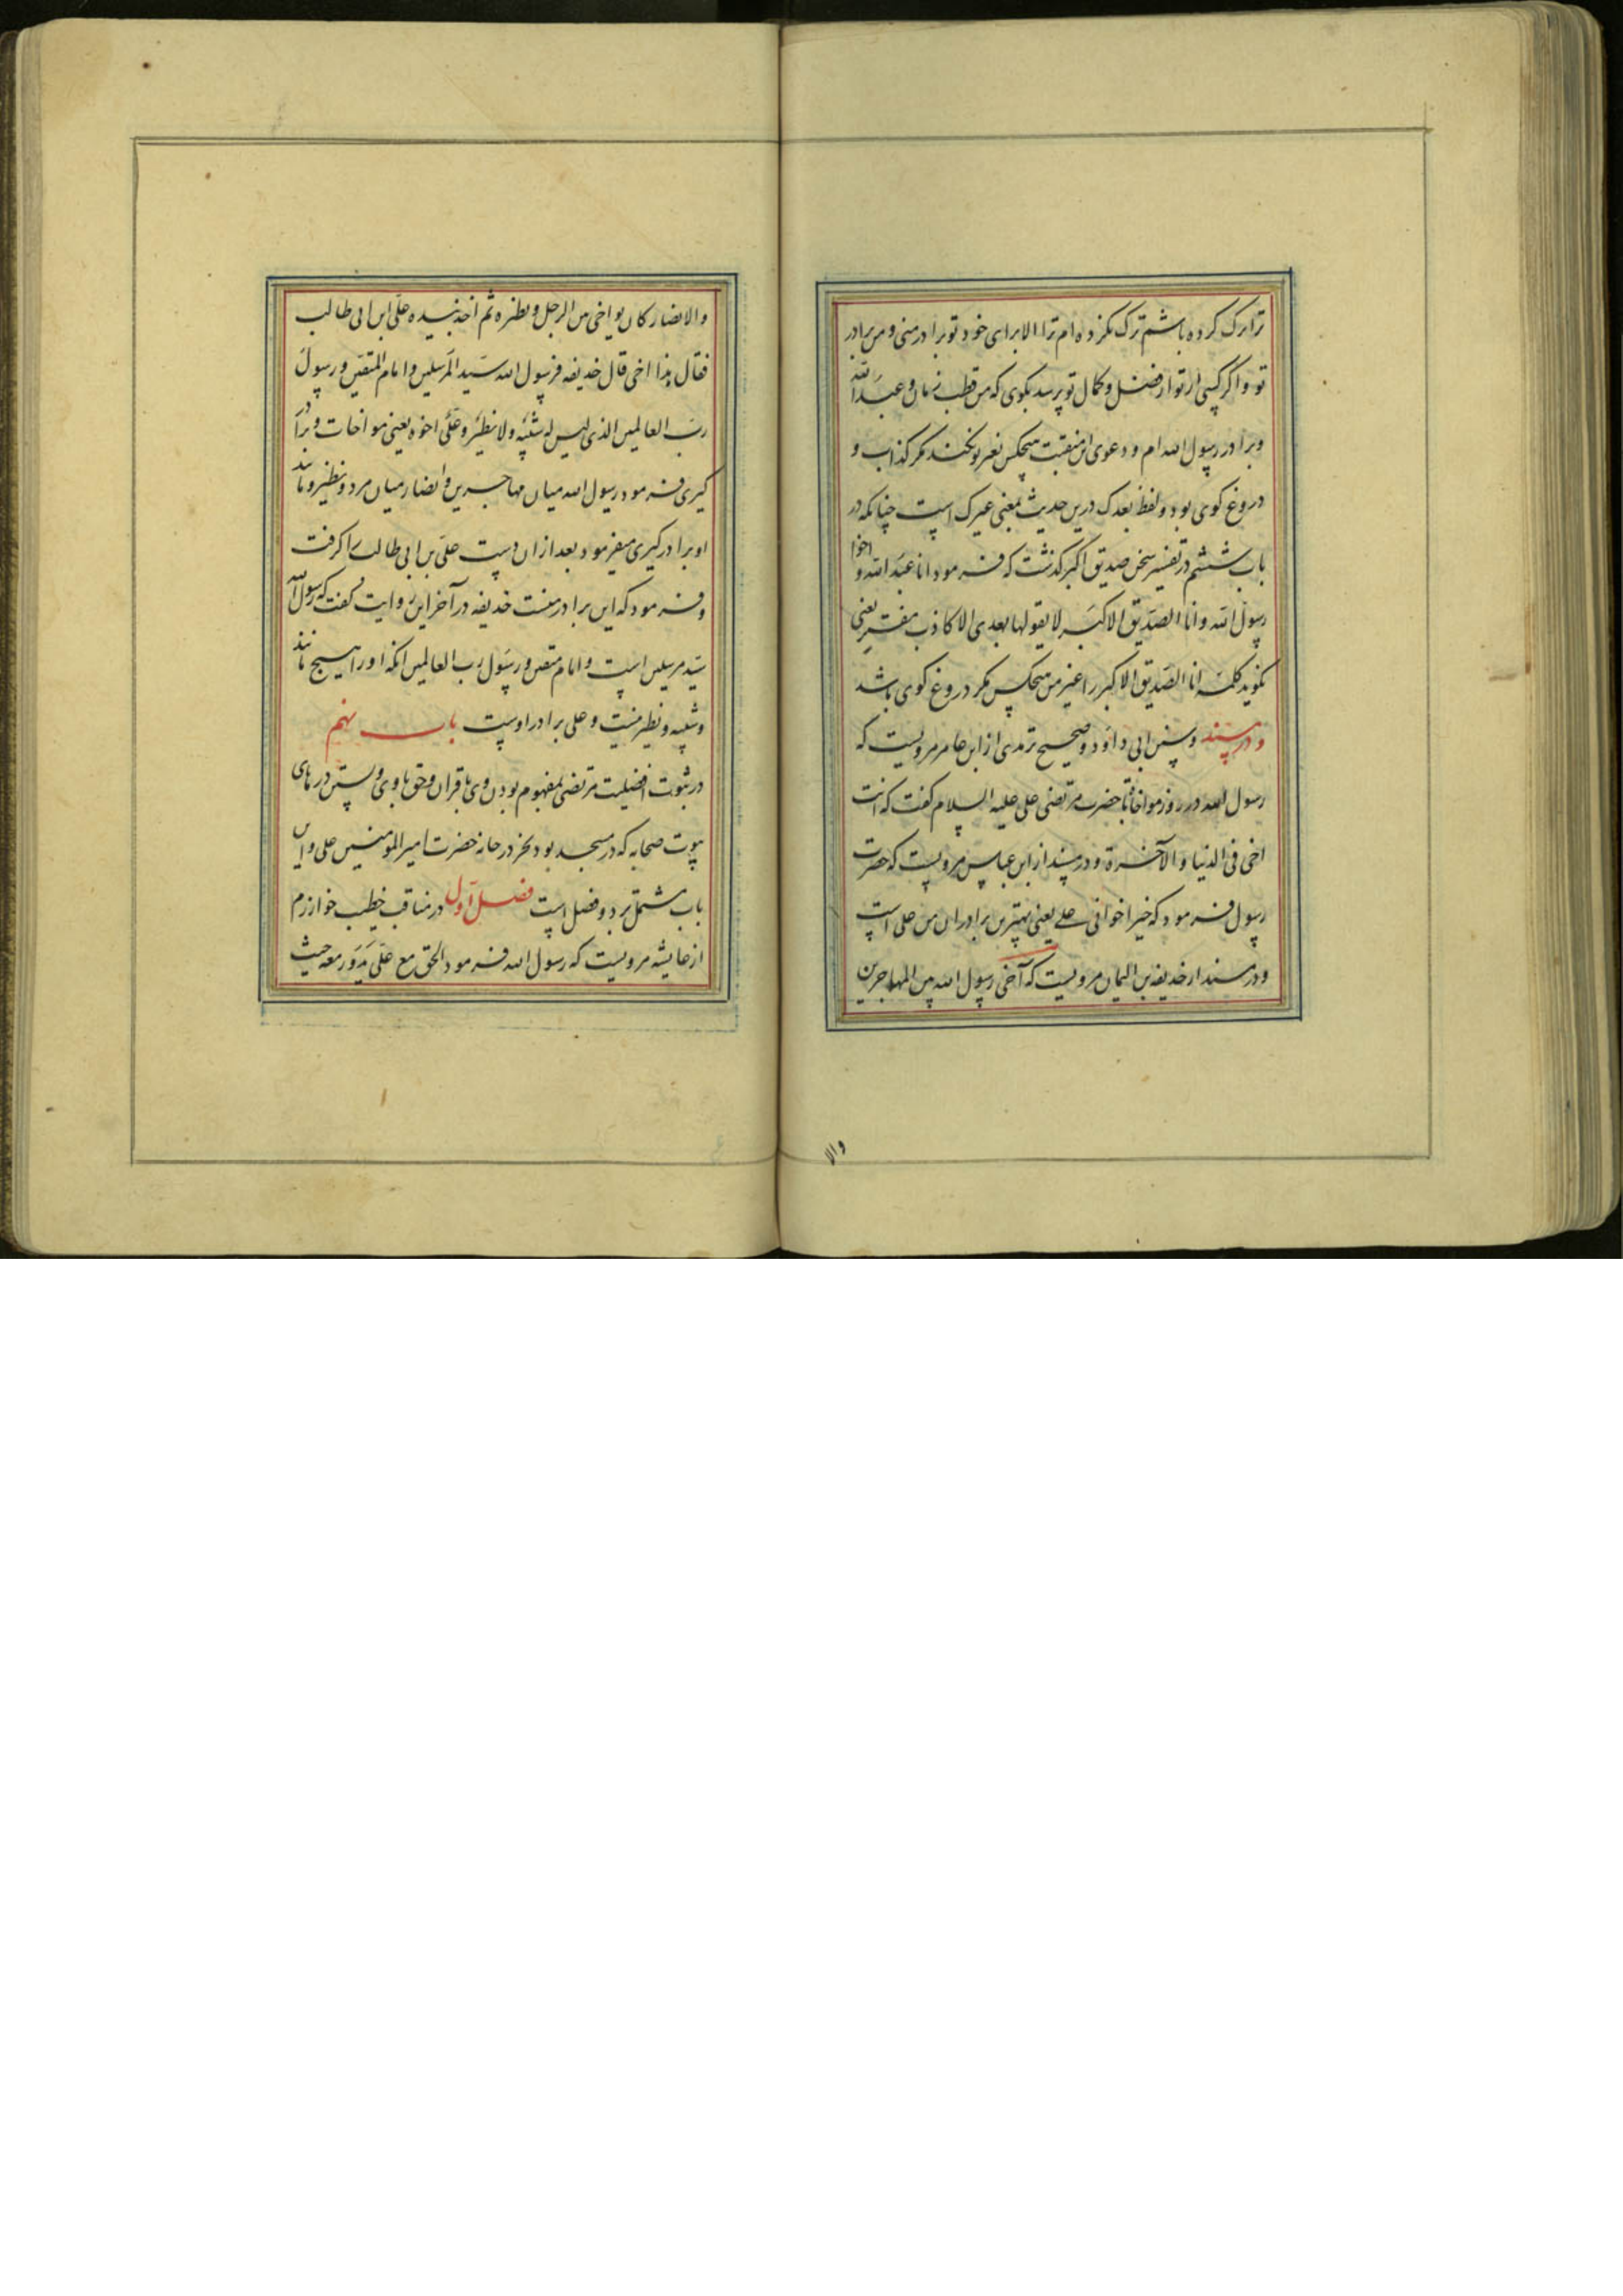 ترا ترک کرده باشم ترک نکرده ام ترا الا برای خود تو برادر منی و من برادر
تو و اگر کسی از تو از فضل و کمال تو پرسد بگوی که من قطب زمان و عبد الله
و برادر رسول الله ام و دعوی این منقبت هیچکس بغیر تو نکند مگر کذاب و
دروغ کوی بود و لفظ بعدک درین حدیث بمعنی غیرک است چنانکه در
باب ششم در تفسیر سخن صدیق اکبر گذشت که فرمود انا عبد الله و اخوا
رسول الله و انا الصدیق الاکبر لا یقولها بعدی الا کاذب مفتر یعنی
نکوید کلمه انا الصدیق الاکبر را غیر من هیچکس مکر دروغ کوی باشد
و در مسند و سنن ابی داود و صحیح ترمدی از ابن عامر مرویست که
رسول الله در روز مواخاة با حضرت مرتضی علی علیه السلام کفت که انت
اخی فی الدنیا و الآخرة و در مسند از ابن عباس مرویست که حضرت
رسول فرمود که خیر اخوانی علی یعنی بهترین برادران من علی است
و در مسند از حذیفه بن الیمان مرویست که آخی رسول الله بین المهاجرین
والا
والانصار کان یواخی بین الرجل و نظیره ثم اخذ بیده علی ابن ابی طالب
فقال هذا اخی قال حذیفه فرسول الله سید المرسلین و امام المتقین و رسول
رب العالمین الذی لیس له شبیه ولا نظیر و علی اخوه یعنی مواخات و برادر
کیری فرمود رسول الله میان مهاجرین و انصار میان مرد و نظیر و مانند
او برادر کیری میفرمود بعد ازان دست علی بن ابی طالب را کرفت
و فرمود که این برادر منست حذیفه در آخر این روایت کفت که رسول الله
سید مرسلین است و امام متقین و رسول رب العالمین انکه او را هیچ مانند
و شبیه و نظیر نیست و علی برادر اوست باب نهم
در ثبوت افضلیت مرتضی بمفهوم بودن وی با قران و حق با وی و بستن درهای
بیوت صحابه که در مسجد بود بجز در خانه حضرت امیر المومنین علی و این
باب مشتمل بر دو فصل است فصل اول در مناقب خطیب خوارزم
از عایشه مرویست که رسول الله فرمود الحق مع علی یدور معه حیث